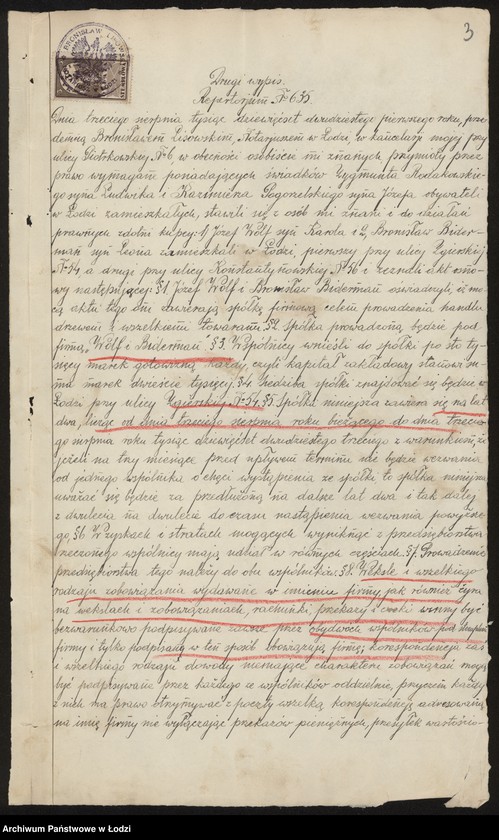 3
BRONISŁAW LISOWSKI
Drugi wypis.
Repertorjum № 635.
Dnia trzeciego sierpnia tysiąc dziewięćset dwudziestego pierwszego roku, przede
mną Bronisławem Lisowskim, Notarjuszem w Łodzi, w kancelarji mojej przy
ulicy Piotrkowskiej № 6 w obecności osobiście mi znanych przymioty przez
prawo wymagane posiadających świadków Zygmunta
go syna Ludwika i Kazimierza Pogorzelskiego syna Józefa obywateli
w Łodzi zamieszkałych, stawili się z osób mi znani i do działań
prawnych zdolni kupcy: 1/ Józef Wolf syn Karola i 2/ Bronisław Bider-
man syn Leona zamieszkali w Łodzi, pierwszy przy ulicy Zgierskiej
№ 54 a drugi przy ulicy Konstantynowskiej № i zeznali akt osno-
wy następującej: §1 Józef Wolf i Bronisław Biderman oświadczyli, iż mo-
cą aktu tego oni zawierają spółkę firmową celem prowadzenia handlu
drzewem i wszelkiemi towarami. §2 Spółka prowadzoną będzie pod
firmą „Wolf i Biderman" §3 Wspólnicy wnieśli do spółki po sto ty-
sięcy marek gotowizną każdy, czyli kapitał zakładowy stanowi su-
ma marek dwieście tysięcy. §4 Siedziba spółki znajdować się będzie w
Łodzi przy ulicy Zgierskiej № 54. §5 Spółka niniejsza zawiera się na lat
dwa, licząc od dnia trzeciego sierpnia roku bieżącego do dnia trzecie-
go sierpnia roku tysiąc dziewięćset dwudziestego trzeciego z warunkiem, że
jeżeli na trzy miesiące przed upływem terminu nie będzie wezwania
od jednego wspólnika o chęci wystąpienia ze spółki to spółka niniejsza
uważać się będzie za przedłużoną na dalsze lat dwa i tak dalej
z dwulecia na dwulecie do czasu nastąpienia wezwania powyższe-
go. §6 W zyskach i stratach mogących wyniknąć z przedsiębiorstwa
rzeczonego wspólnicy mają udział w równych częściach. §7. Prowadzenie
przedsiębiorstwa tego należy do obu wspólników. §8. Weksle i wszelkiego
rodzaju zobowiązania wydawane w imieniu firmy jak również żyra
na wekslach i zobowiązaniach, rachunki, przekazy i czeki winny być
bezwarunkowo podpisywane zawsze przez obydwóch wspólników pod stemplem
firmy i tylko podpisane w ten sposób obowiązują firmę; korespondencja zaś
i wszelkiego rodzaju dowody niemające charakteru zobowiązań mogą
być podpisywane przez każdego ze wspólników oddzielnie, przyczem każdy
z nich ma prawo otrzymywać z poczty wszelką korespondencję adresowaną
na imię firmy nie wyłączając przekazów pieniężnych, przesyłek wartościo-
Archiwum Państwowe w Łodzi